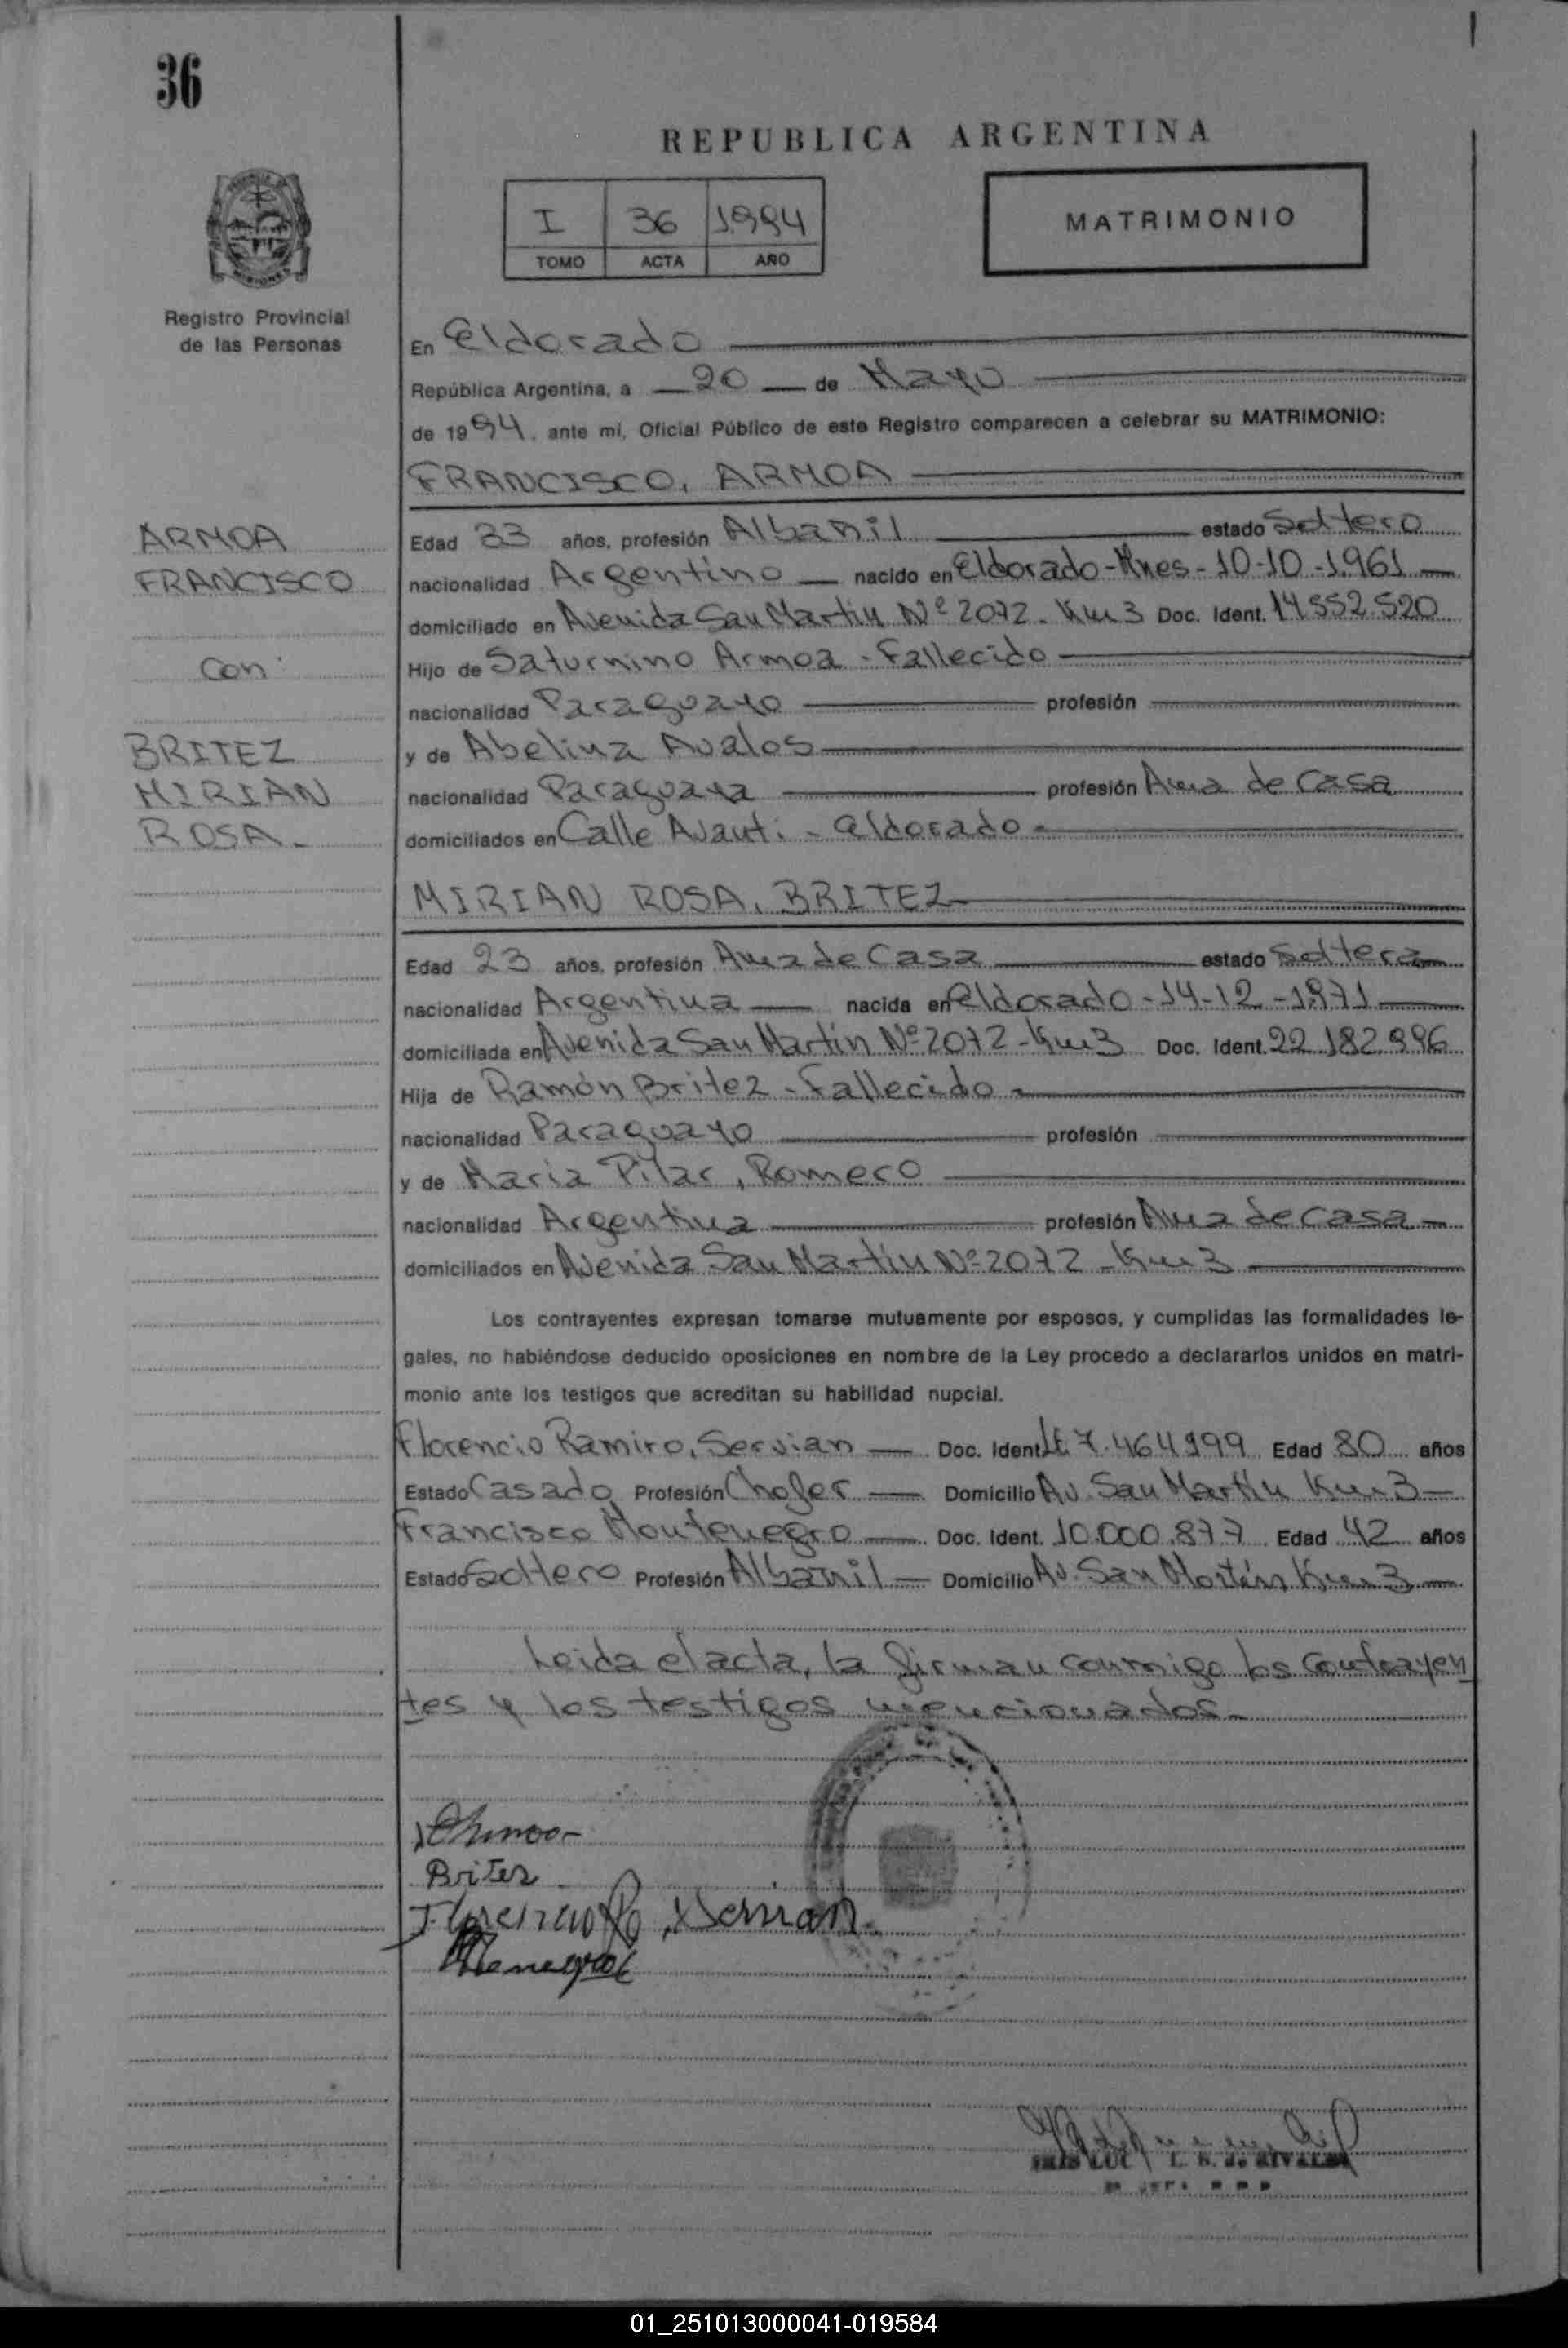 36
REPUBLICA ARGENTINA
I 36 1994
TOMO ACTA AÑO
MATRIMONIO
Registro Provincial
de las Personas
En Eldorado
República Argentina, a 20 de Mayo
de 1994, ante mi, Oficial Público de este Registro comparecen a celebrar su MATRIMONIO:
FRANCISCO, ARMOA
ARMOA
FRANCISCO
Con
BRITEZ
MIRIAN
ROSA.
Edad 33 años, profesión Albañil estado Soltero
nacionalidad Argentino nacido en Eldorado-Mnes-10-10-1.961
domiciliado en Avenida San Martin Nº 2072 - Km 3 Doc. Ident. 14.552.520
Hijo de Saturnino Armoa - Fallecido
nacionalidad Paraguayo profesión
y de Abelina Avalos
nacionalidad Paraguaya profesión Ama de Casa
domiciliados en Calle Avauti - Eldorado -
MIRIAN ROSA, BRITEZ
Edad 23 años, profesión Ama de Casa estado Soltera
nacionalidad Argentina nacida en Eldorado-14-12-1.971
domiciliada en Avenida San Martin Nº 2072 - Km 3 Doc. Ident. 22.182.996
Hija de Ramón Britez - Fallecido -
nacionalidad Paraguayo profesión
y de Maria Pilar, Romero
nacionalidad Argentina profesión Ama de Casa
domiciliados en Avenida San Martin Nº 2072 - Km 3
Los contrayentes expresan tomarse mutuamente por esposos, y cumplidas las formalidades le-
gales, no habiéndose deducido oposiciones en nombre de la Ley procedo a declararlos unidos en matri-
monio ante los testigos que acreditan su habilidad nupcial.
Florencio Ramiro, Servian Doc. Ident. LE 7.464.999 Edad 80 años
Estado Casado Profesión Chofer Domicilio Av. San Martin Km 3
Francisco Montenegro Doc. Ident. 10.000.877 Edad 42 años
Estado Soltero Profesión Albañil Domicilio Av. San Martin Km 3
Leida el acta, la firman conmigo los contrayen
tes y los testigos mencionados.
Britez
01_251013000041-019584